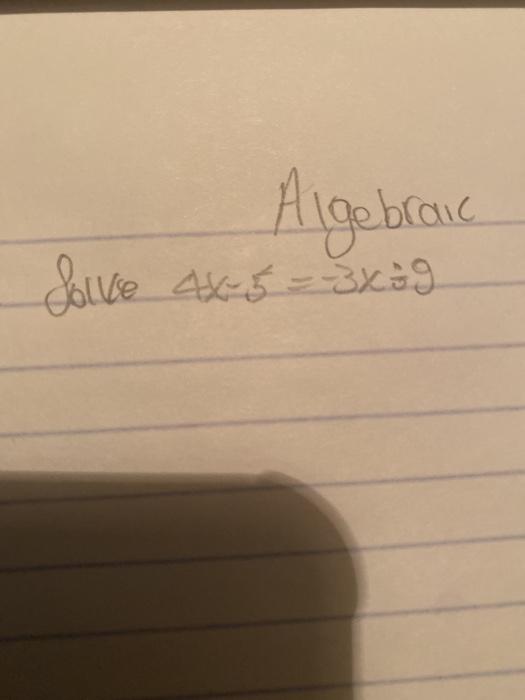 Algebraic
Solve 4x-5=-3x÷9